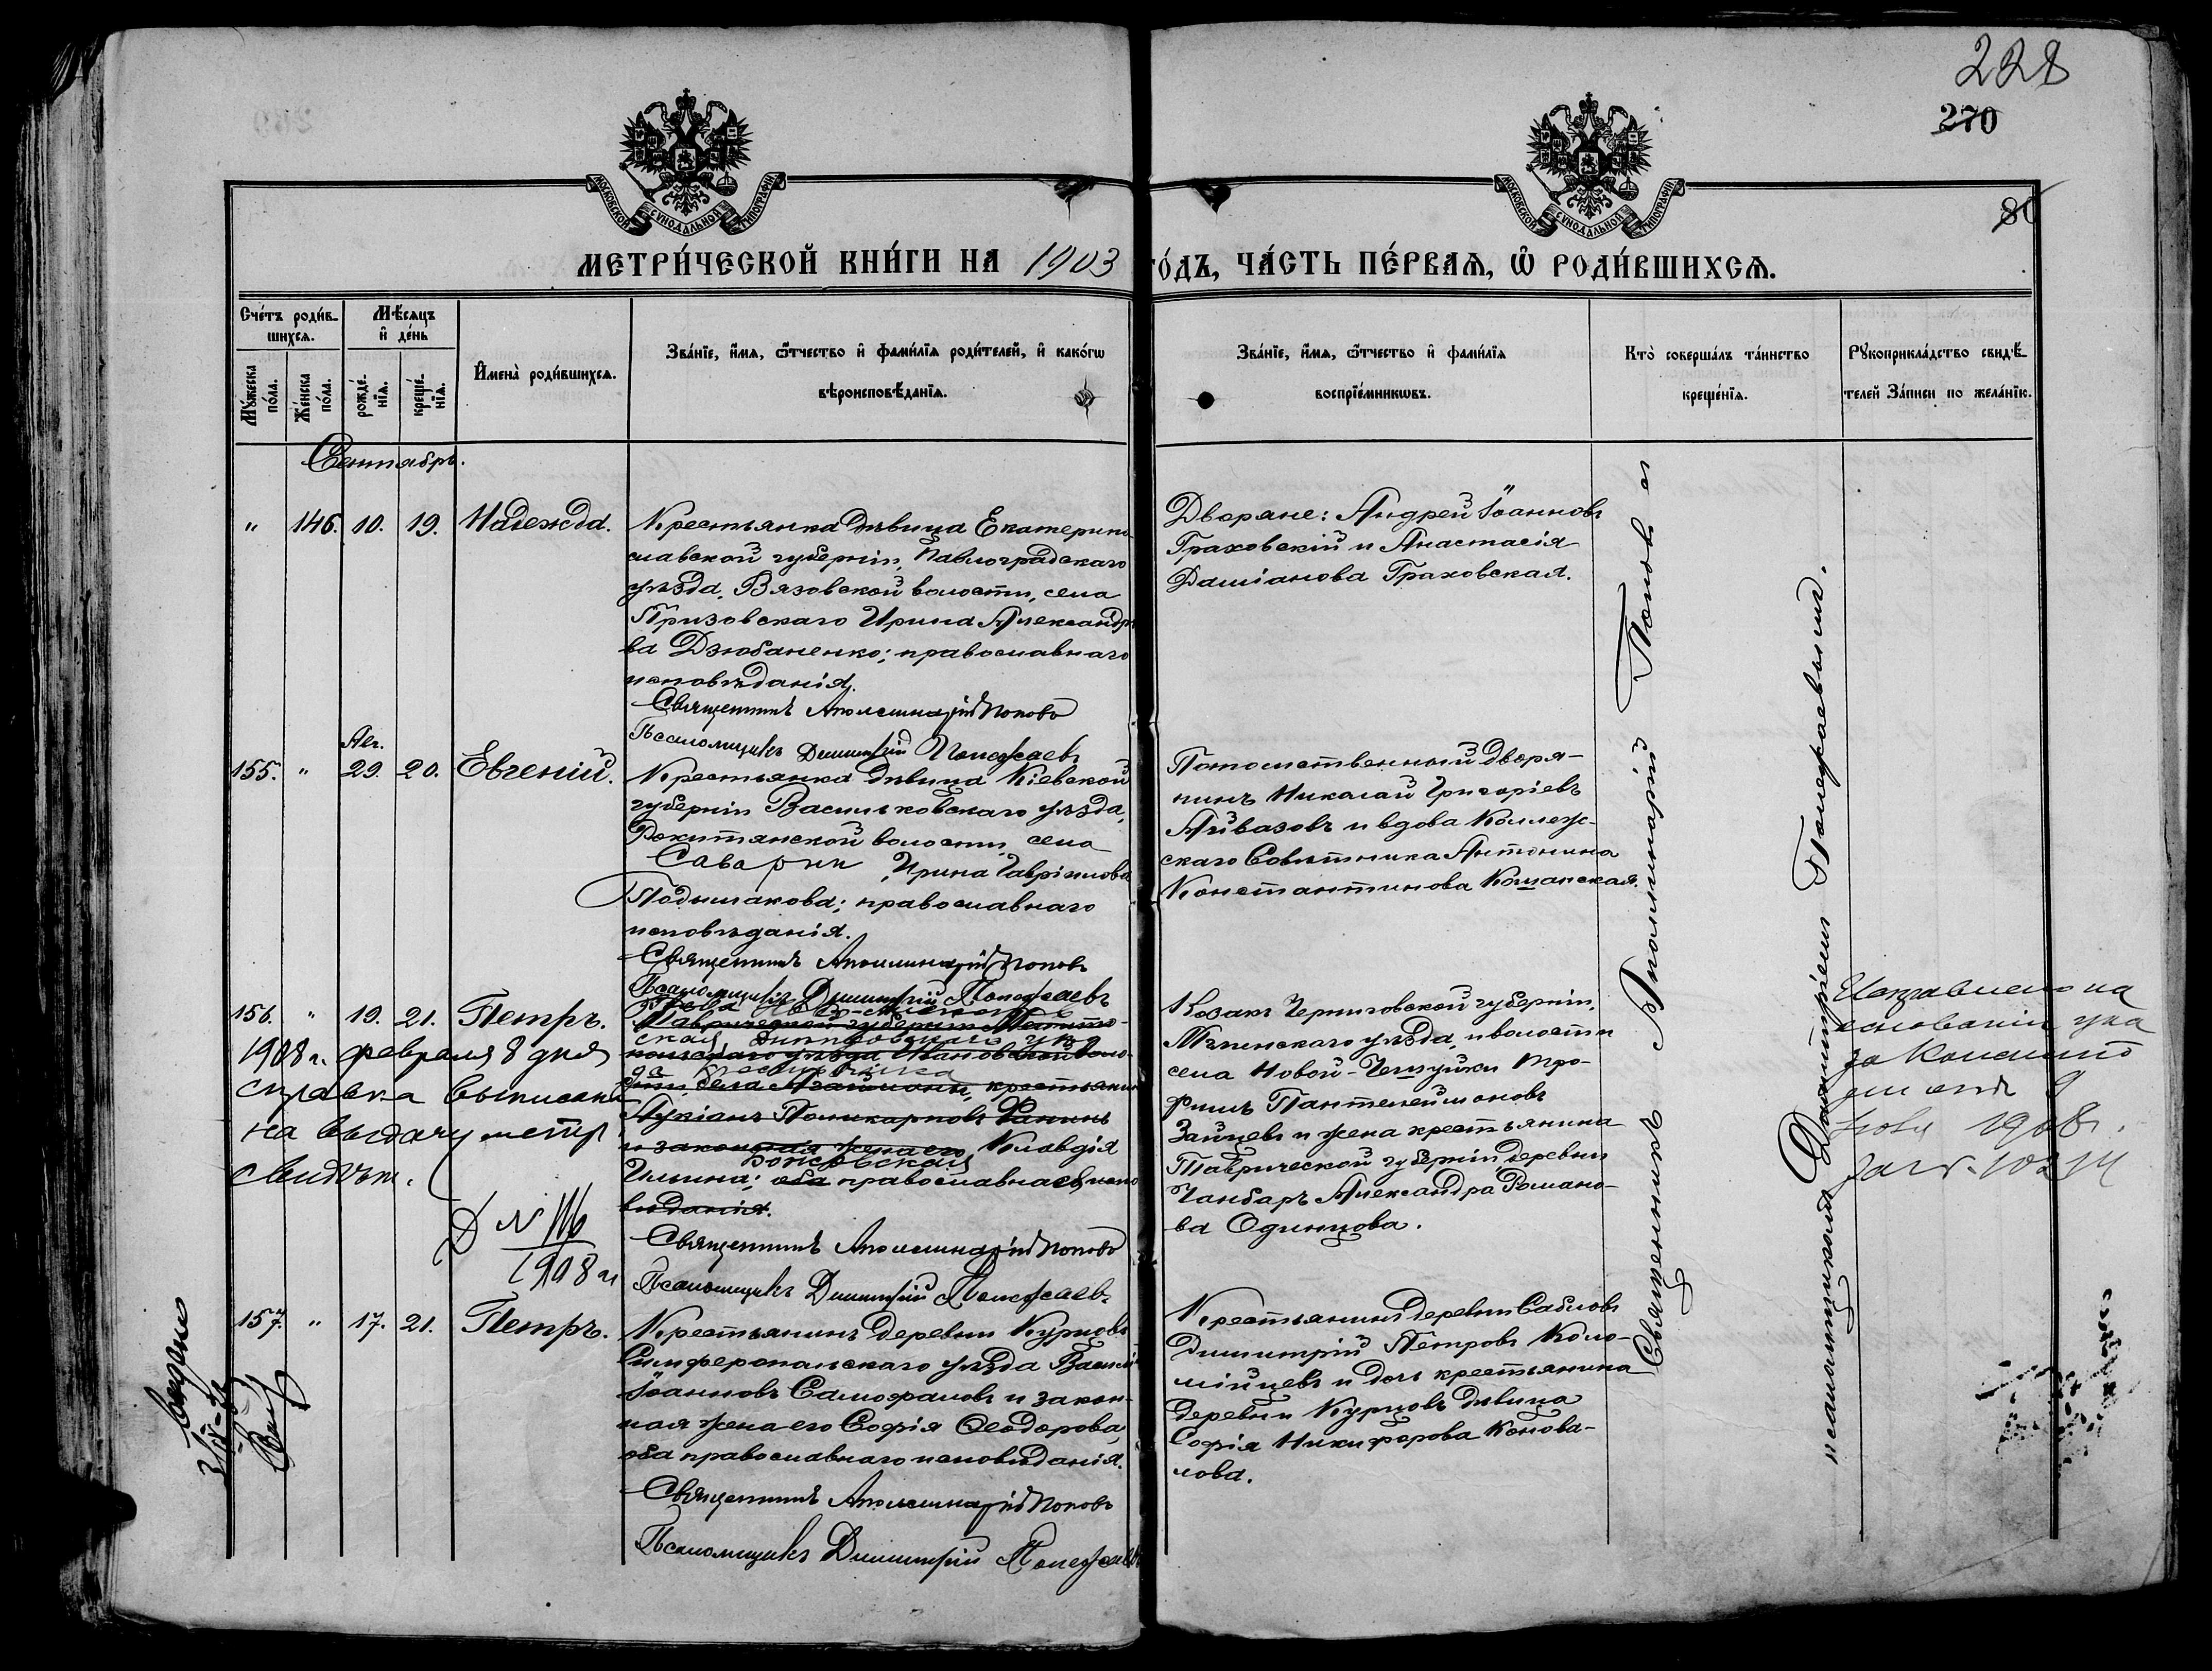 228
270
80
МОСКОВСКОЙ СѴНОДАЛЬНОЙ ТИПОГРАФІИ
МОСКОВСКОЙ СѴНОДАЛЬНОЙ ТИПОГРАФІИ
МЕТРИ́ЧЕСКОЙ КНИ́ГИ НА 1903 ГО́ДЪ, ЧА́СТЬ ПЕ́РВАѦ, Ѡ҆ РОДИ́ВШИХСѦ.
Сче́тъ роди́в-
шихсѧ.
Мѣ́сѧцъ
и҆ де́нь
Мꙋ́жеска
по́ла.
Же́нска
по́ла.
рожде́-
нїѧ.
креще́-
нїѧ.
И҆мена̀ роди́вшихсѧ.
Зва́нїе, и҆́мѧ, ѻ҆́тчество и҆ фами́лїѧ роди́телей, и҆ како́гѡ
вѣроисповѣ́данїѧ.
Зва́нїе, и҆́мѧ, ѻ҆́тчество и҆ фами́лїѧ
воспрїе́мникѡвъ.
Кто̀ соверша́лъ та́инство
креще́нїѧ.
Рꙋкоприкла́дство свидѣ́-
телей За́писи по жела́нїю.
Сентябрь.
" 146. 10. 19. Надежда.
Крестьянка дѣвица Екатерино-
славской губерніи, Павлоградскаго
уѣзда, Вязовской волости, села
Призовскаго Ирина Александро-
ва Дзюбаненко; православнаго
исповѣданія.
Священникъ Аполлинарій Поповъ
Псаломщикъ Димитрій
Дворяне: Андрей Іоанновъ
Граховскій и Анастасія
Даміанова Граховская.
155. " Авг. 29. 20. Евгеній.
Крестьянка дѣвица Кіевской
губерніи Васильковскаго уѣзда,
Рокитянской волости, села
Саварки, Ирина Гавріилова
Подымакова; православнаго
исповѣданія.
Священникъ Аполлинарій Поповъ
Псаломщикъ Димитрій
Потомственный дворя-
нинъ Николай Григоріевъ
Айвазовъ и вдова Коллеж-
скаго Совѣтника Антонина
Константинова Кошанская.
156. " 19. 21. Петръ.
1908 г. февраля 8 дня
справка выписана
на выдачу метр
свидѣт.
Д № 116
1908 г.
Таврической губерніи Мелито-
польскаго уѣзда Ивановской воло-
сти, села крестьянинъ
Лукіанъ Поликарповъ
и законная жена его Клавдія
Ильина; оба православнаго испо
вѣданія.
Священникъ Аполлинарій Поповъ
Псаломщикъ Димитрій
Козакъ Черниговской губерніи,
Мглинскаго уѣзда, и волости
села Новой-Чешуйки Тро-
фимъ Пантелеймоновъ
Зайцевъ и жена крестьянина
Таврической губерніи, деревни
Чанбаръ Александра Романо-
ва Одинцова.
Исправлено на
основаніи ука
за Консисто
ріи отъ 9
1908 г.
157. " 17. 21. Петръ.
Крестьянинъ деревни Курцовъ
Симферопольскаго уѣзда Василій
Іоанновъ Самофаловъ и закон-
ная жена его Софія Ѳеодорова,
оба православнаго исповѣданія.
Священникъ Аполлинарій Поповъ
Псаломщикъ Димитрій
Крестьянинъ деревни Сабловъ
Димитрій Петровъ Коло-
мійцевъ и дочь крестьянина
деревни Курцовъ дѣвица
Софія Никифорова Конова-
лова.
Священникъ Аполлинарій Поповъ съ
псаломщикомъ Димитріемъ